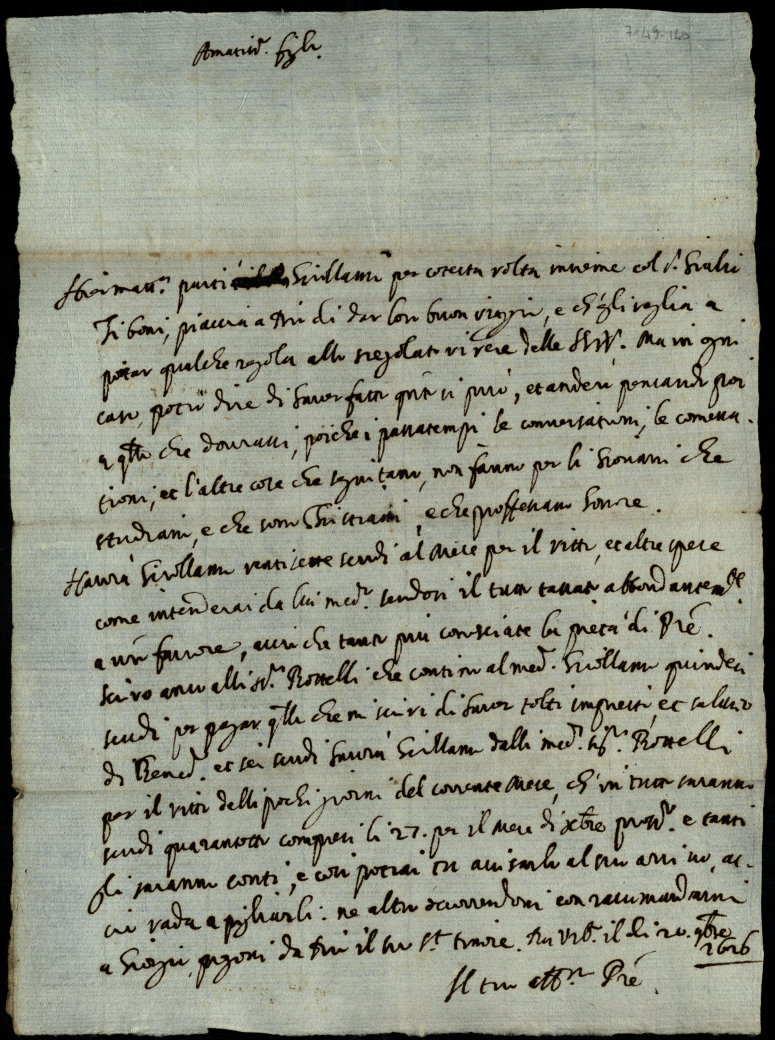 7·49·120
Amatiss.º figlo.
Hiermatt.ª parti Girollamo per cotesta volta insieme col S.r Giulio
Tiboni, piaccia a Dio di dar loro buon viaggio, e ch'egli vaglia a
portar qualche regola allo sregolato vivere delle SS.VV. Ma in ogni
caso, potrò dire di haver fatto qnto si può, et anderò pensando poi
a qllo che dovrassi, poiche i passatempi le conversationi, le comessa-
tioni, et l'altre cose che seguitano, non fanno per li Giovani che
studiano, e che sono Christiani, e che professano honore.
Haverà Girollamo ventisette scudi al Mese per il vitto, et altre spese
come intenderai da lui med.º sendosi il tutto tassato abbondantem.te
a vro favore, acciò che tanto più conosciate la pietà di Pre.
Scrivo anco alli SS.ri Rosselli che contino al med.º Girollamo quindeci
scudi per pagar qlli che mi scrivi di haver tolti impresti, et salario
di Bened.º et sei scudi haverà Girollamo dalli med.i SS.ri Rosselli
per il vitto delli pochi giorni del corrente Mese, ch'in tutto saranno
scudi quarantotto compresi li 27. per il Mese di xbre pross.º e tanti
gli saranno conti, e così potrai tu avisarlo al suo arrivo, ac-
ciò vada a pigliarli: ne altro occorrendomi con raccomandarmi
a Giorgio, pregovi da Dio il suo S.to timore. Di Urb.º il dì 20. 9bre
1626
Il tuo aff.mo Pre.